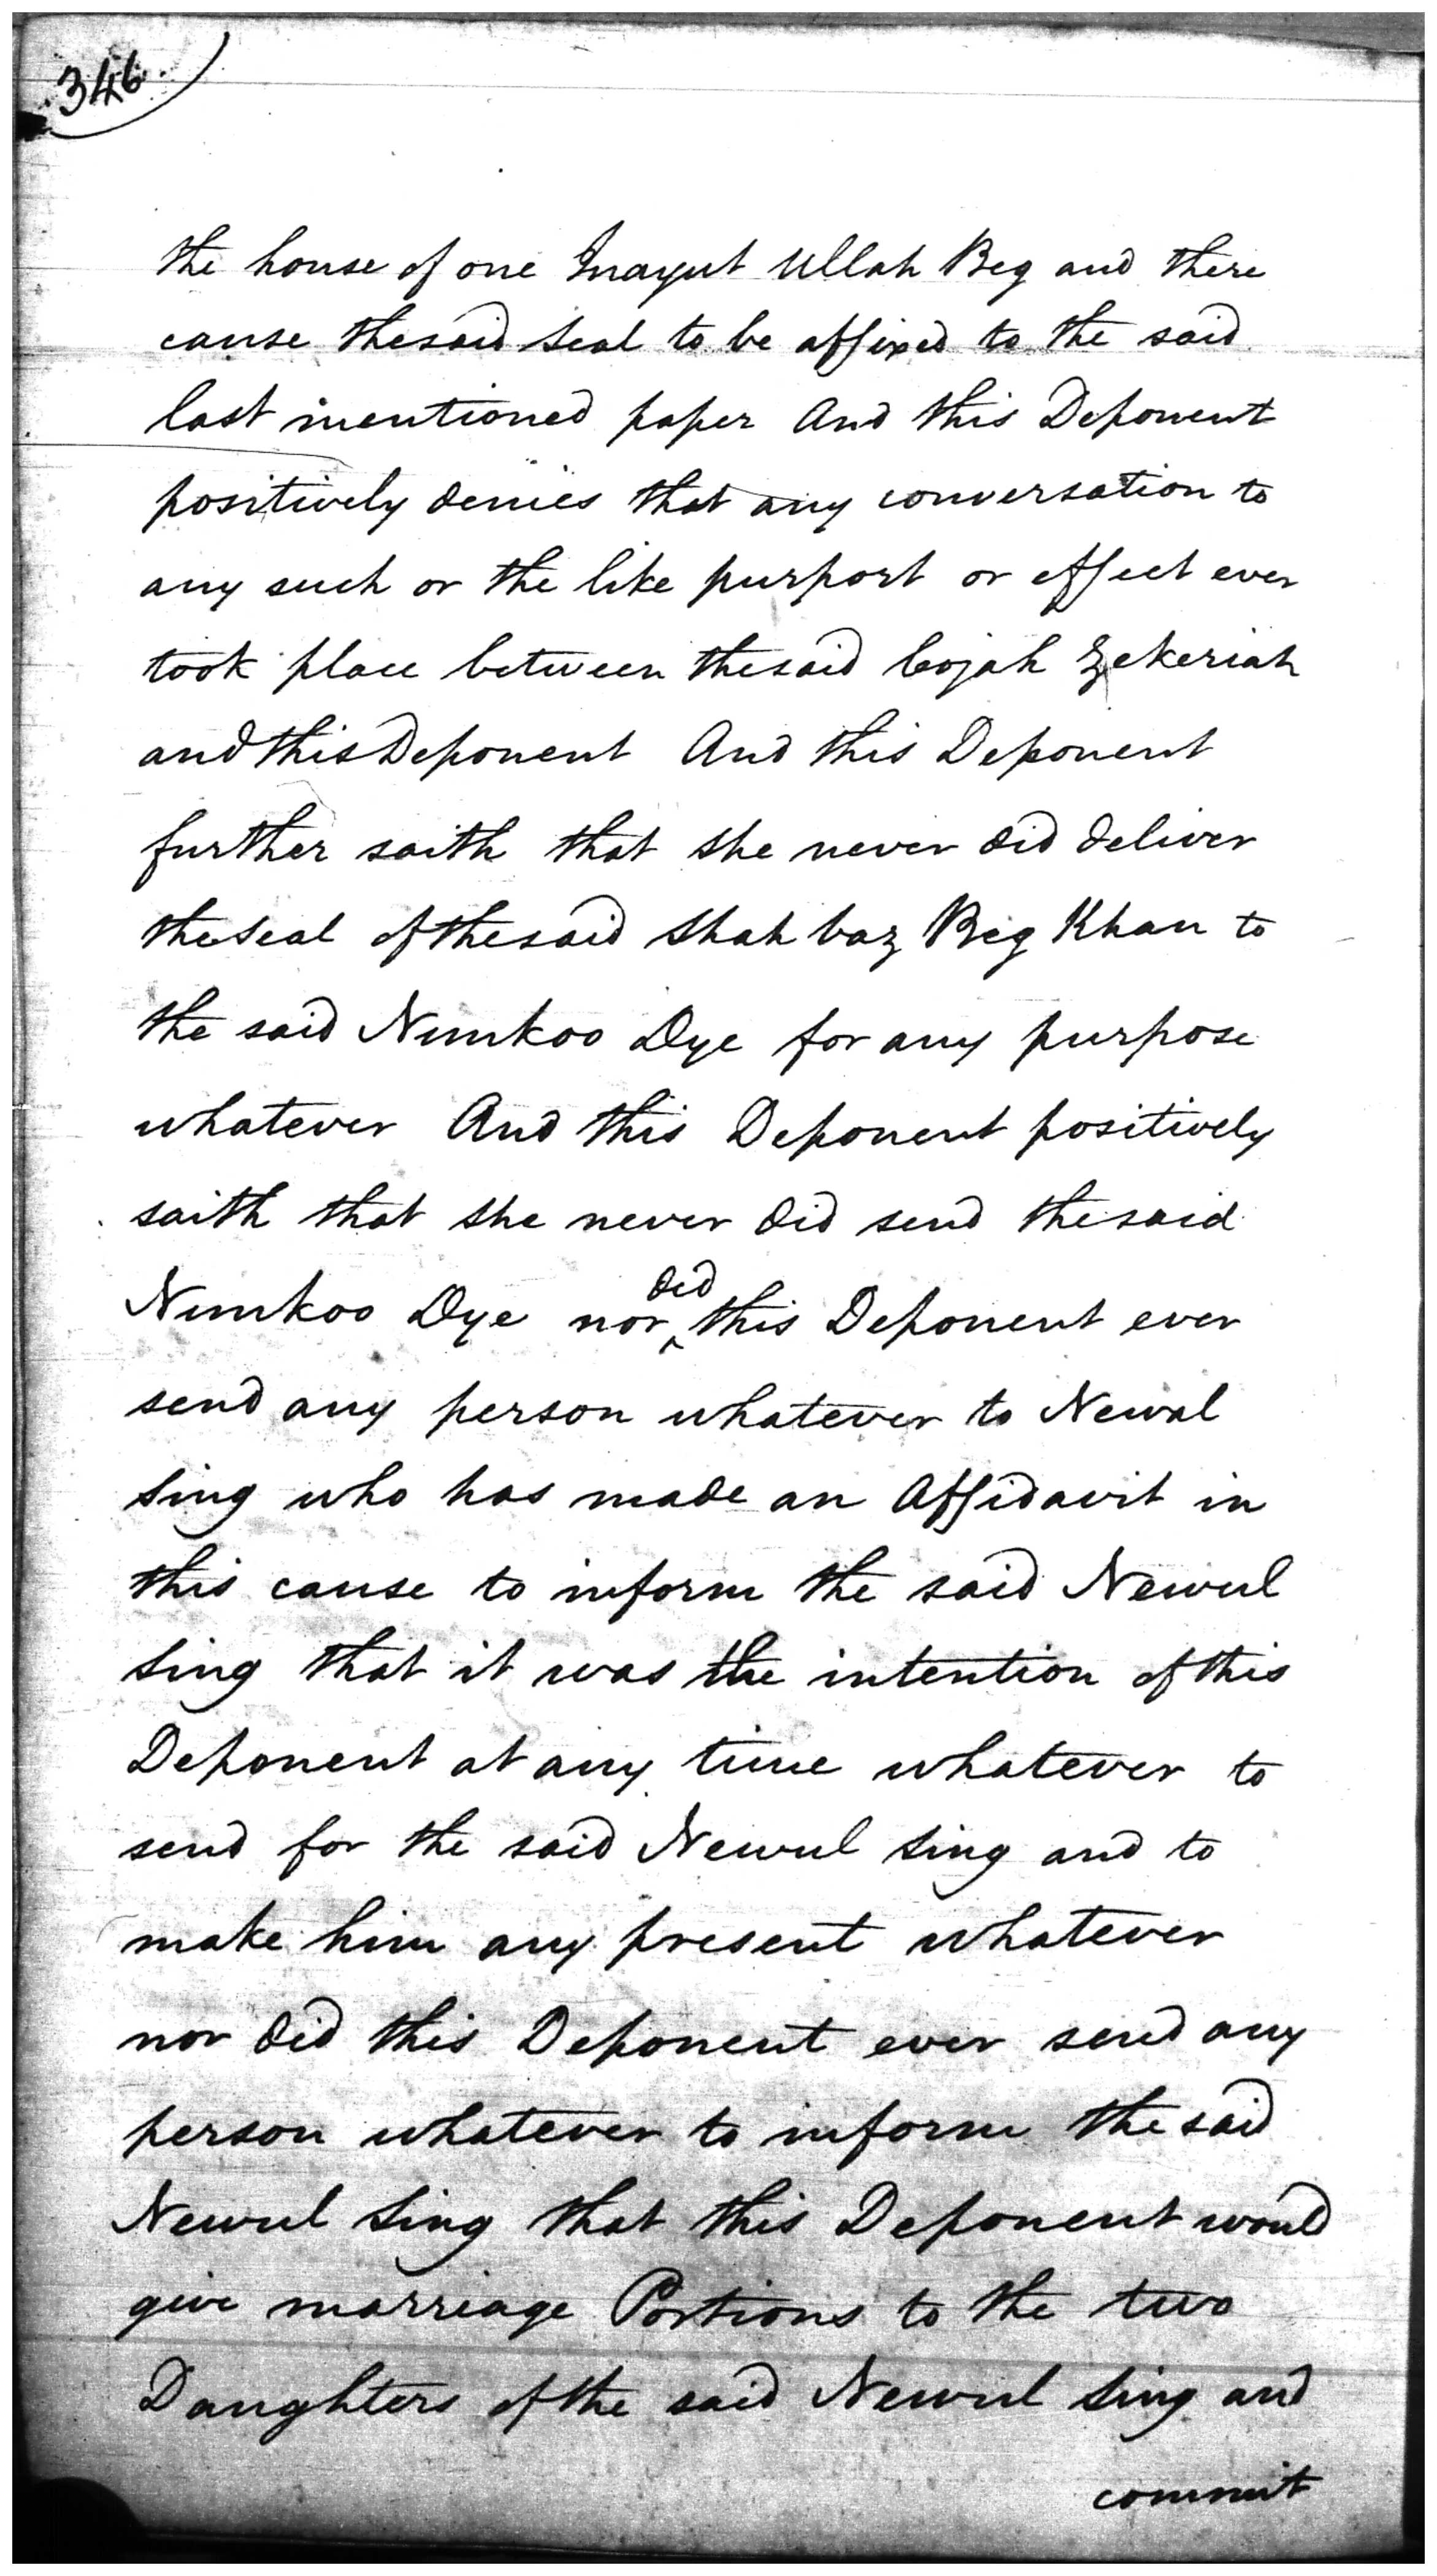 346
the house of one Inayut Ullah Beg and there
cause the said Seal to be affixed to the said
last mentioned paper And this Deponent
positively denies that any conversation to
any such or the like purport or effect ever
took place between the said Cojah Zekeriah
and this Deponent And this Deponent
further saith that she never did deliver
the Seal of the said Shah baz Beg Khan to
the said Nimkoo Dye for any purpose
whatever And this Deponent positively
saith that she never did send the said
Nimkoo Dye nor did this Deponent ever
send any person whatever to Newal
Sing who has made an Affidavit in
this cause to inform the said Newul
Sing that it was the intention of this
Deponent at any time whatever to
send for the said Newul Sing and to
make him any present whatever
nor did this Deponent ever send any
person whatever to inform the said
Newul Sing that this Deponent would
give marriage Portions to the two
Daughters of the said Newul Sing and
commit